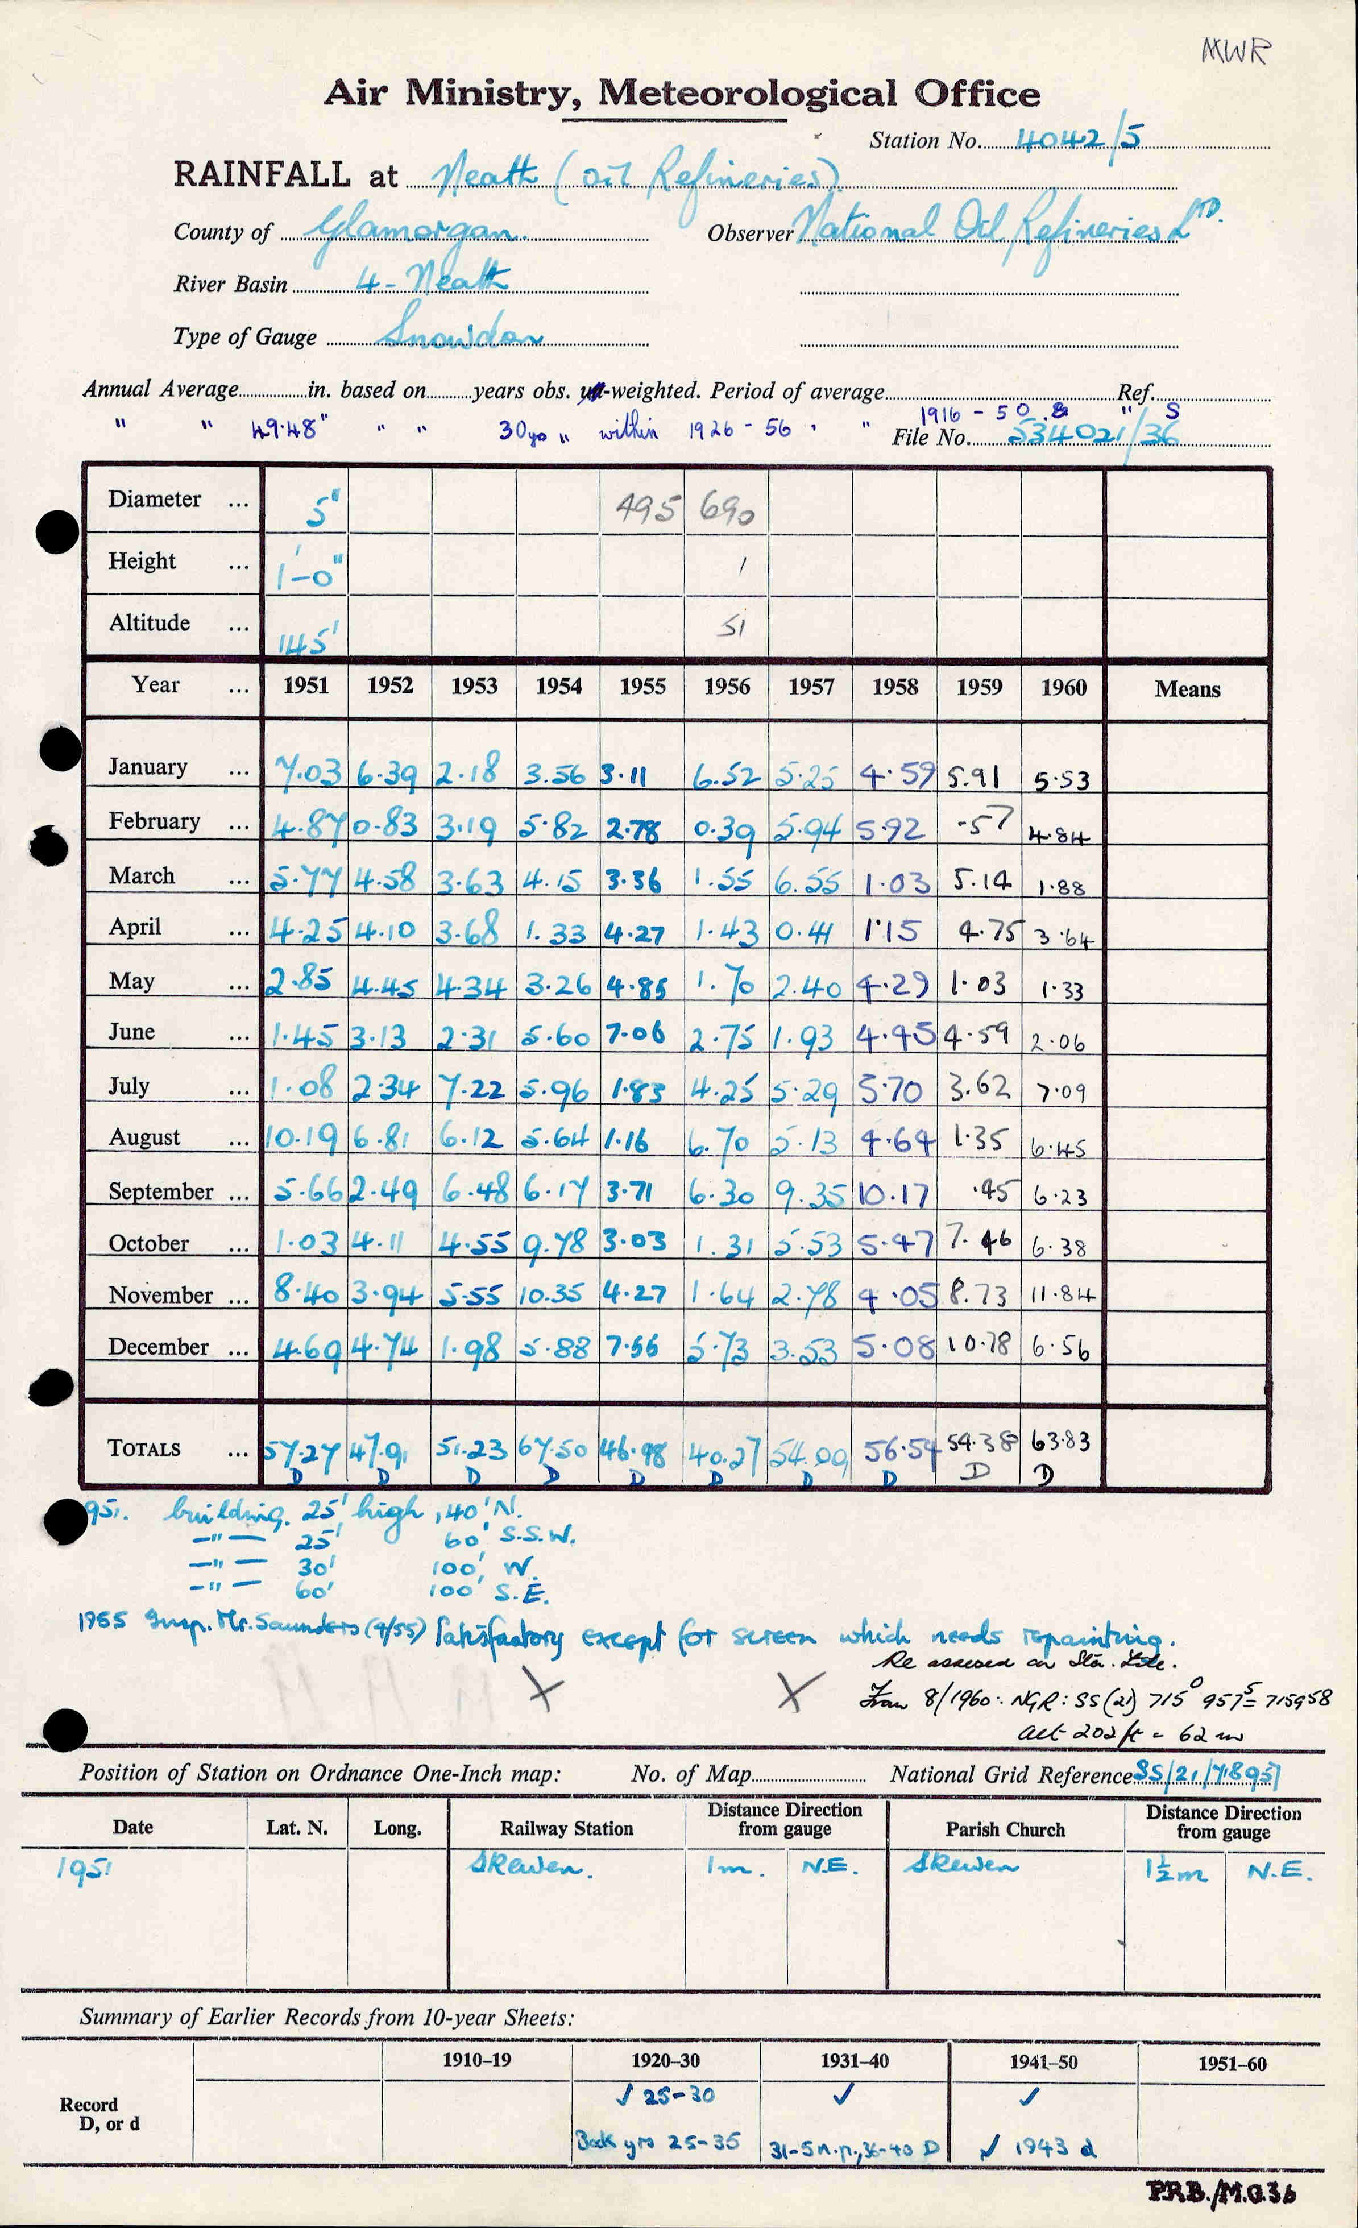 MWR
Air Ministry, Meteorological Office
Station No. 4042/5
RAINFALL at Neath (Oil Refineries)
County of Glamorgan. Observer National Oil Refineries LTD.
River Basin 4 - Neath
Type of Gauge Snowdon
Annual Average in. based on years obs. -weighted. Period of average Ref.
" " 49.48" " " 30 yrs " within 1926 - 56 . " 1916 - 50 & " S
File No. 534021/36
Diameter ... 5" 495 690
Height ... 1'-0" 1
Altitude ... 145' 51
Year ... 1951 1952 1953 1954 1955 1956 1957 1958 1959 1960 Means
January ... 7.03 6.39 2.18 3.56 3.11 6.52 5.25 4.59 5.91 5.53
February ... 4.87 0.83 3.19 5.82 2.78 0.39 5.94 5.92 .57 4.84
March ... 5.77 4.58 3.63 4.15 3.36 1.55 6.55 1.03 5.14 1.88
April ... 4.25 4.10 3.68 1.33 4.27 1.43 0.41 1.15 4.75 3.64
May ... 2.85 4.45 4.34 3.26 4.85 1.70 2.40 4.29 1.03 1.33
June ... 1.45 3.13 2.31 5.60 7.06 2.75 1.93 4.45 4.59 2.06
July ... 1.08 2.34 7.22 5.96 1.83 4.25 5.29 5.70 3.62 7.09
August ... 10.19 6.81 6.12 5.64 1.16 6.70 5.13 4.64 1.35 6.45
September ... 5.66 2.49 6.48 6.17 3.71 6.30 9.35 10.17 .45 6.23
October ... 1.03 4.11 4.55 9.78 3.03 1.31 5.53 5.47 7.46 6.38
November ... 8.40 3.94 5.55 10.35 4.27 1.64 2.78 4.05 8.73 11.84
December ... 4.69 4.74 1.98 5.88 7.55 5.73 3.53 5.08 10.78 6.56
TOTALS ... 57.27 47.91 51.23 67.50 46.98 40.27 54.09 56.54 54.38 63.83
D D D D D D D D D D
951. building. 25' high, 40' N.
—"— 25' 60' S.S.W.
—"— 30' 100' W.
—"— 60' 100' S.E.
1955 Insp. Mr. Saunders (9/55) Satisfactory except for screen which needs repainting.
Re assessed on Stn. Lste.
From 8/1960: NGR: SS (21) 715⁰ 957⁵= 715958
alt 202 ft = 62 m
Position of Station on Ordnance One-Inch map: No. of Map National Grid Reference SS/21/718957
Date Lat. N. Long. Railway Station Distance Direction from gauge Parish Church Distance Direction from gauge
1951 Skewen. 1m. N.E. Skewen 1½m N.E.
Summary of Earlier Records from 10-year Sheets:
1910–19 1920–30 1931–40 1941–50 1951–60
Record D, or d ✓ 25-30 ✓ ✓
Back yrs 25-35 31-5 n.p., 36-40 D ✓ 1943 d
P.R.B./M.O.36